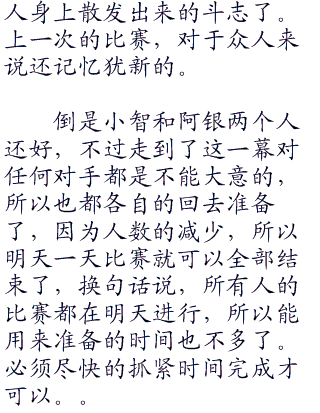 人身上散发出来的斗志了。
上一次的比赛，对于众人来
说还记忆犹新的。
倒是小智和阿银两个人
还好，不过走到了这一幕对
任何对手都是不能大意的，
所以也都各自的回去准备
了，因为人数的减少，所以
明天一天比赛就可以全部结
束了，换句话说，所有人的
比赛都在明天进行，所以能
用来准备的时间也不多了。
必须尽快的抓紧时间完成才
可以。。